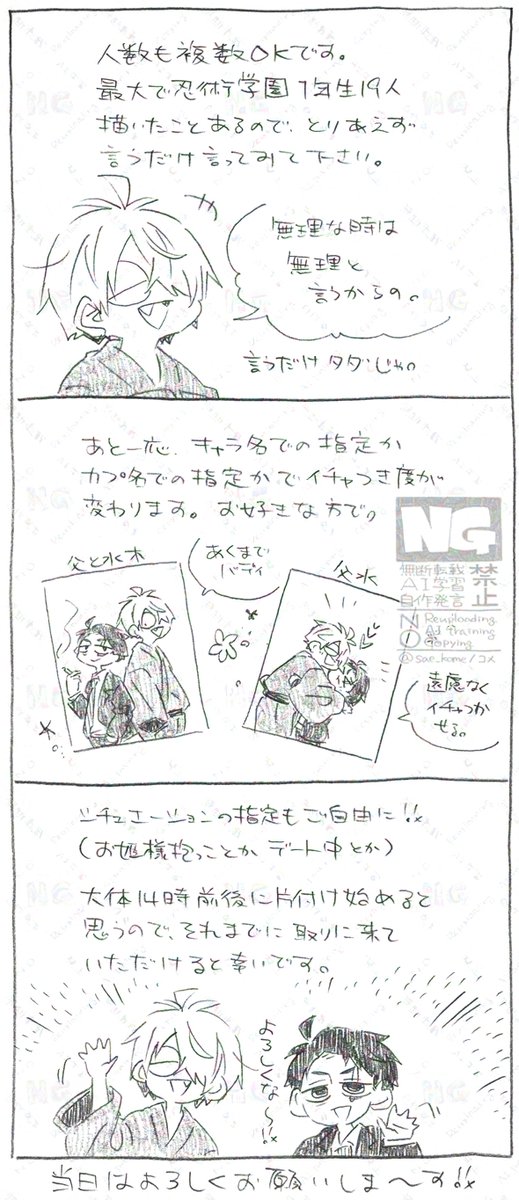 人数も複数OKです。
最大で忍術学園1年生19人
描いたことあるので、とりあえず
言うだけ言ってみて下さい。
無理な時は
無理と
言うからの。
言うだけタダじゃ。
あと一応、キャラ名での指定か
カプ名での指定かでイチャつき度が
変わります。お好きな方で。
父と水木
あくまで
バディ
父水
NG
無断転載
AI学習
自作発言
禁止
NO
Reuploading
AI training
Copying
@sae_kome/コメ
遠慮なく
イチャつか
せる。
シチュエーションの指定もご自由に!!
(お姫様抱っことか デート中とか)
大体14時前後に片付け始めると
思うので、それまでに取りに来て
いただけると幸いです。
よろしくな〜!!
当日はよろしくお願いしま〜す!!